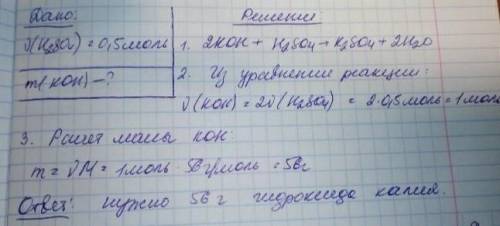 Дано:
Решение
ν(H₂SO₄) = 0,5 моль
1. 2KOH + H₂SO₄ → K₂SO₄ + 2H₂O
m(KOH) – ?
2. Из уравнения реакции:
ν(KOH) = 2ν(H₂SO₄) = 2·0,5 моль = 1 моль
3. Расчет массы KOH:
m = νM = 1 моль · 56 г/моль = 56 г
Ответ: нужно 56 г гидроксида калия.